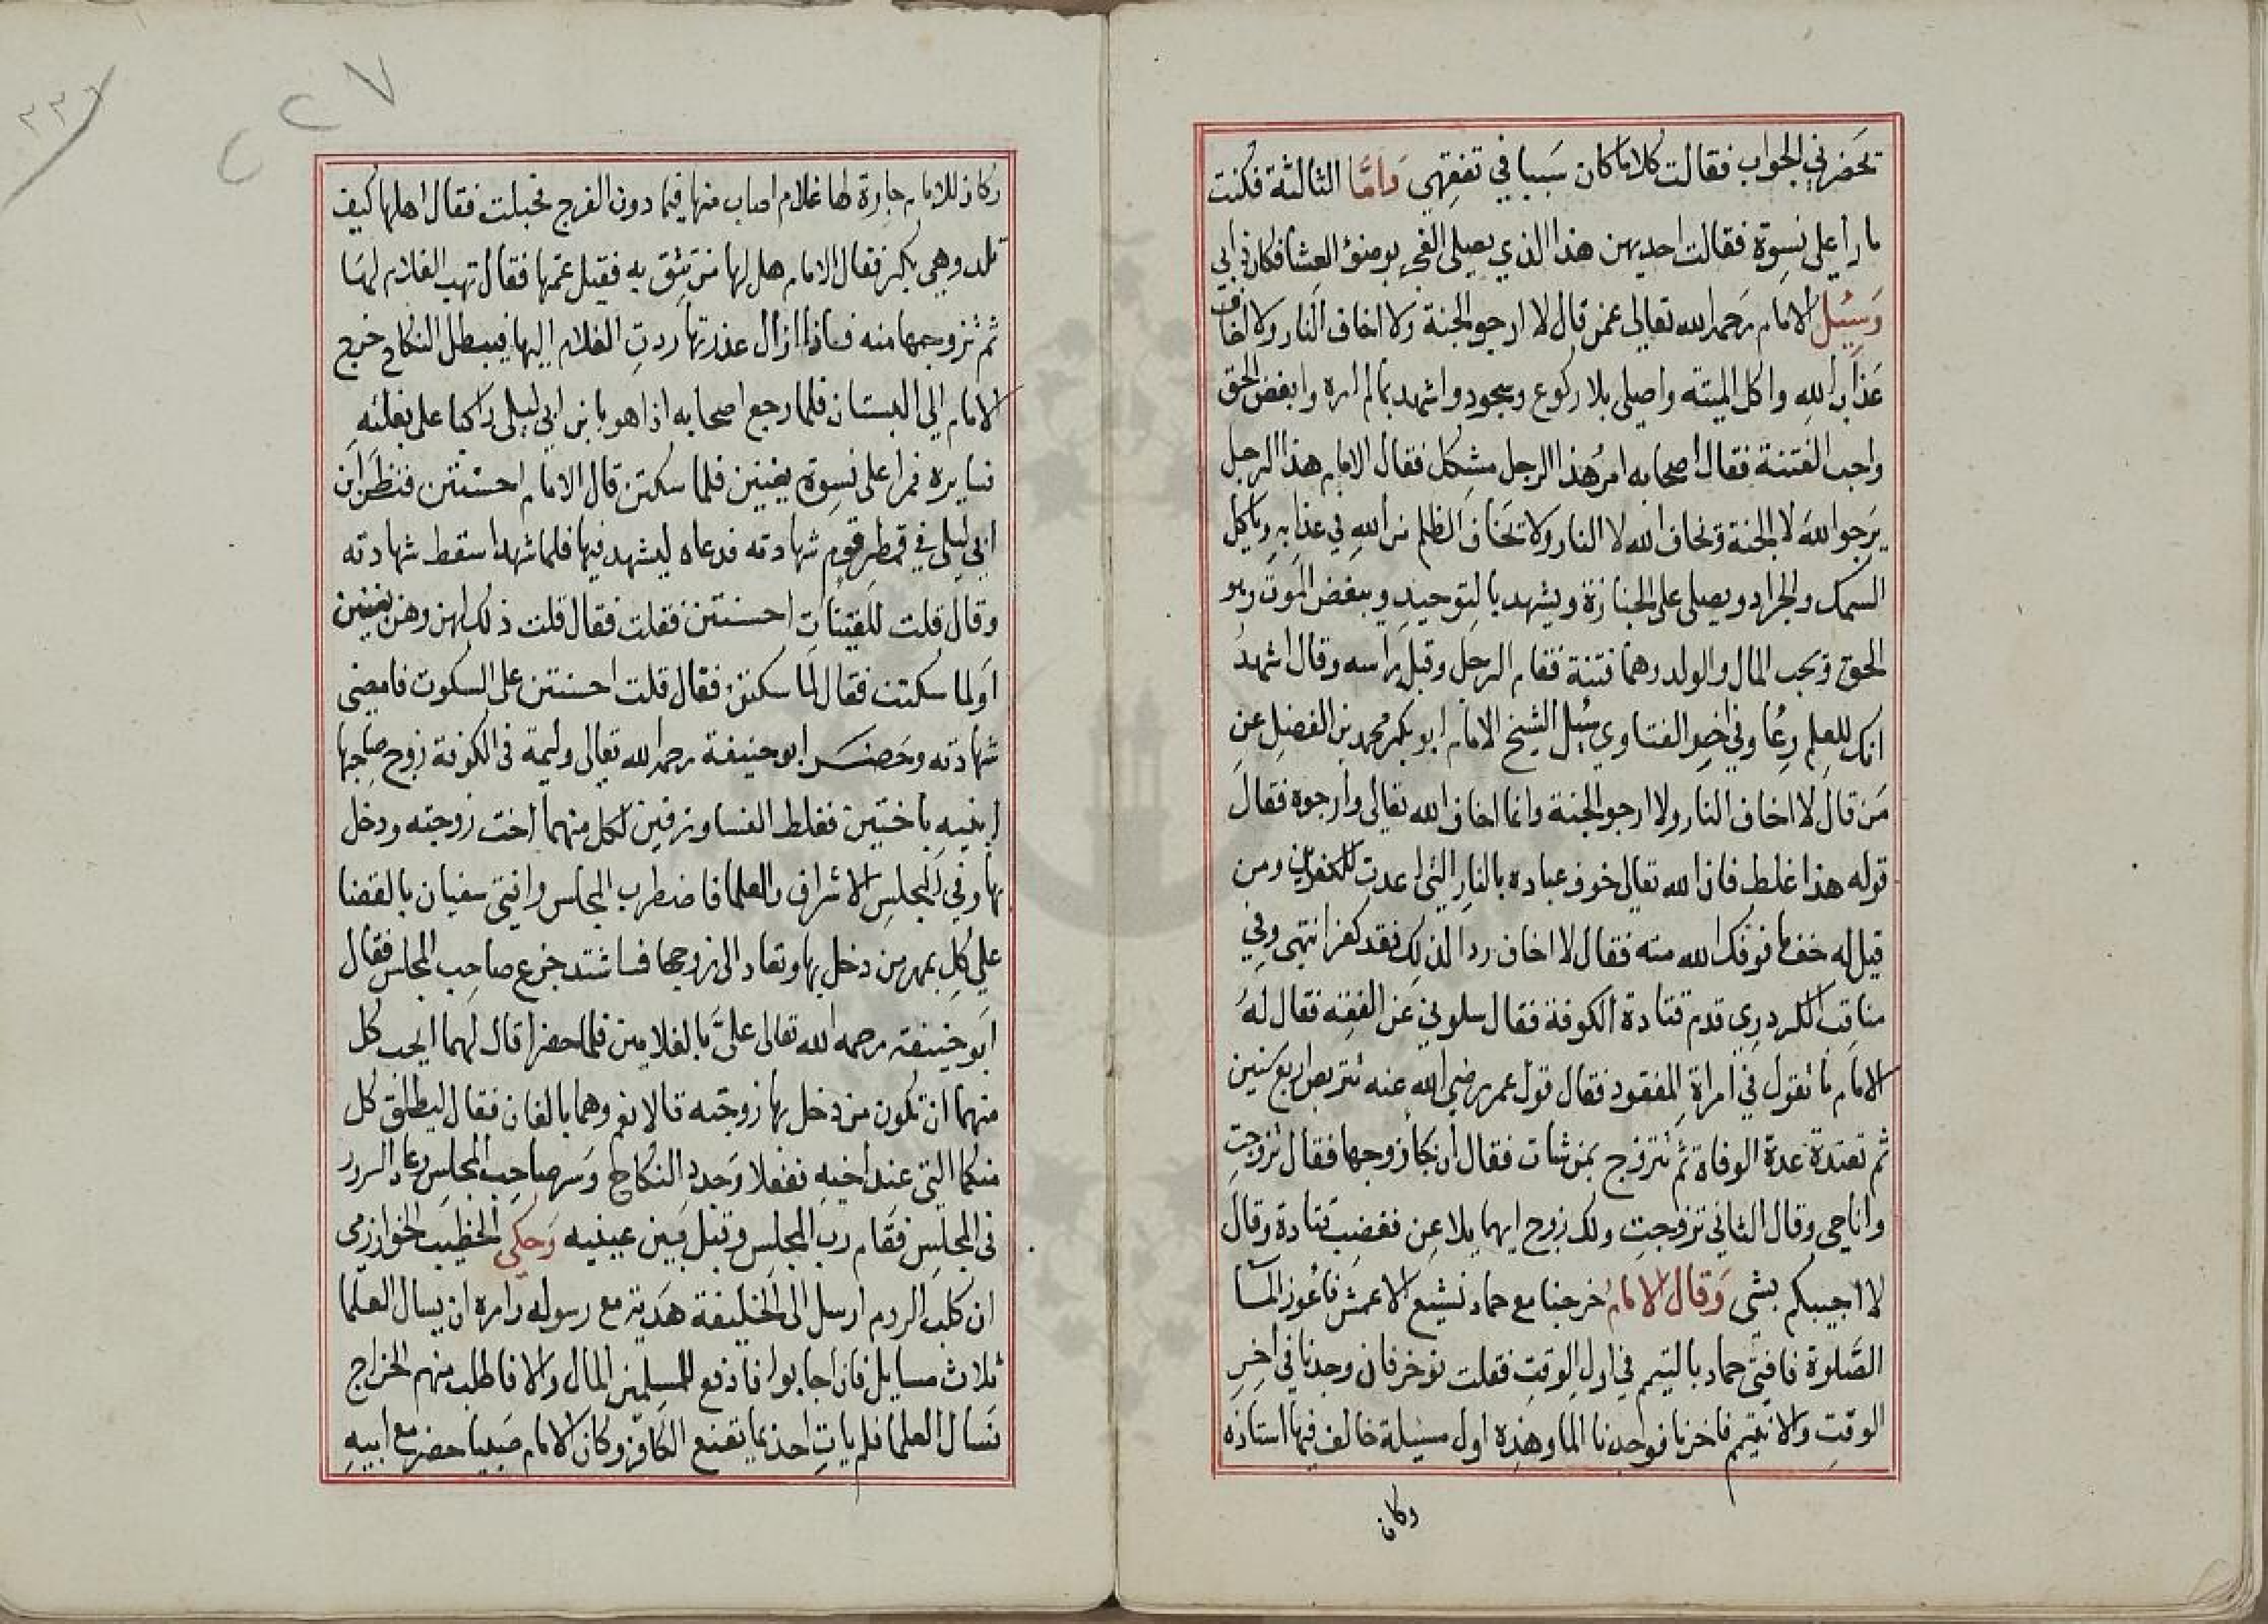 تحضرني الجواب فقالت كلاما كان سببا في تفقهي وامّا الثالثة فكنت
مارا على نسوة فقالت احديهن هذا الذي يصلى الفجر بوضؤ العشا فكان ذابي
وسئل الامام رحمه الله تعالى عمن قال لا ارجو الجنة ولا اخاف النار ولا اخاف
عذاب الله واكل الميتة واصلى بلا ركوع وسجود واشهد بما لم اره وابغض الحق
واحب الفتنة فقال اصحابه امر هذا الرجل مشكل فقال الامام هذا الرجل
يرجو الله لا الجنة ويخاف الله لا النار ولا يخاف الظلم من الله في عذابه وياكل
السمك والجراد ويصلى على الجنازة ويشهد بالتوحيد ويبغض الموت وهو
الحق ويحب المال والولد وهما فتنة فقام الرجل وقبل راسه وقال اشهد
انك للعلم وعا وفي اخر الفتاوي سئل الشيخ الامام ابو بكر محمد بن الفضل عن
من قال لا اخاف النار ولا ارجو الجنة وانما اخاف الله تعالى وارجوه فقال
قوله هذا غلط فان الله تعالى خوف عباده بالنار التى اعدت للكفرين ومن
قيل له خف مما خوفك الله منه فقال لا اخاف ردا لذلك فقد كفر انتهى وفي
مناقب الكردري قدم قتادة الكوفة فقال سلوني عن الفقه فقال له
الامام ما تقول في امراة المفقود فقال قول عمر رضي الله عنه تتربص اربع سنين
ثم تعتدة عدة الوفاة ثم تتزوج بمن شات فقال ان جا زوجها فقال تزوجت
وانا حى وقال الثاني تزوجت ولك زوج ايهما يلاعن فغضب قتادة وقال
لا اجيبكم بشى وقال الامام خرجنا مع حماد نشيع الاعمش فاعوز المآ
الصلوة فافتى حماد بالتيمم في اول الوقت فقلت نوخر فان وجدنا في اخر
الوقت والا نتيمم فاخرنا فواجدنا الما وهذه اول مسئلة خالف فيها استاذه
وكان
٢٢٧
وكان للامام جارة لها غلام اصاب منها فيما دون الفرج فحبلت فقال اهلها كيف
تلد وهي بكر فقال الامام هل لها من تثق به فقيل عمتها فقال تهب الغلام لها
ثم تزوجها منه فاذا ازال عذرتها ردت الغلام اليها فيبطل النكاح خرج
الامام الى البستان فلما رجع اصحابه اذا هو بابن ابي ليلى راكبا على بغلته
فسايره فمرا على نسوة يغنين فلما سكتن قال الامام احسنتن فنظر ابن
ابي ليلى في قمطر فوجد شهادته فدعاه ليشهد فيها فلما شهد اسقط شهادته
وقال قلت للقينات احسنتن فقلت فقال قلت ذلك لهن وهن يغنين
اولما سكتن فقال لما سكتن فقال قلت احسنتن على السكوت فامضى
شهادته وحضر ابو حنيفة رحمه الله تعالى وليمة في الكوفة زوج صاحبها
ابنيه باختين فغلط النسا وزفين لكل منهما اخت زوجته ودخل
بها وفي المجلس الاشراف والعلما فاضطرب المجلس وافتى سفيان بالقضا
على كل بمهر من دخل بها وتعاد الى زوجها فاشتد جزع صاحب المجلس فقال
ابو حنيفة رحمه الله تعالى علىّ بالغلامين فلما حضرا قال لهما ايحب كل
منهما ان تكون من دخل بها زوجته قالا نعم وهما بالغان فقال ليطلق كل
منكما التى عند اخيه ففعلا وجدد النكاح وسر صاحب المجلس وعاد السرور
فى المجلس فقام رب المجلس وقبل بين عينيه وحكى الخطيب الخوارزمى
ان كلب الروم ارسل الى الخليفة هدية مع رسوله وامره ان يسال العلما
ثلاث مسايل فان اجابوا فادفع للمسلمين المال والا فاطلب منهم الخراج
فسال العلما فلم يات احد بما يقنع الكافر وكان الامام صبيا حضر مع ابيه